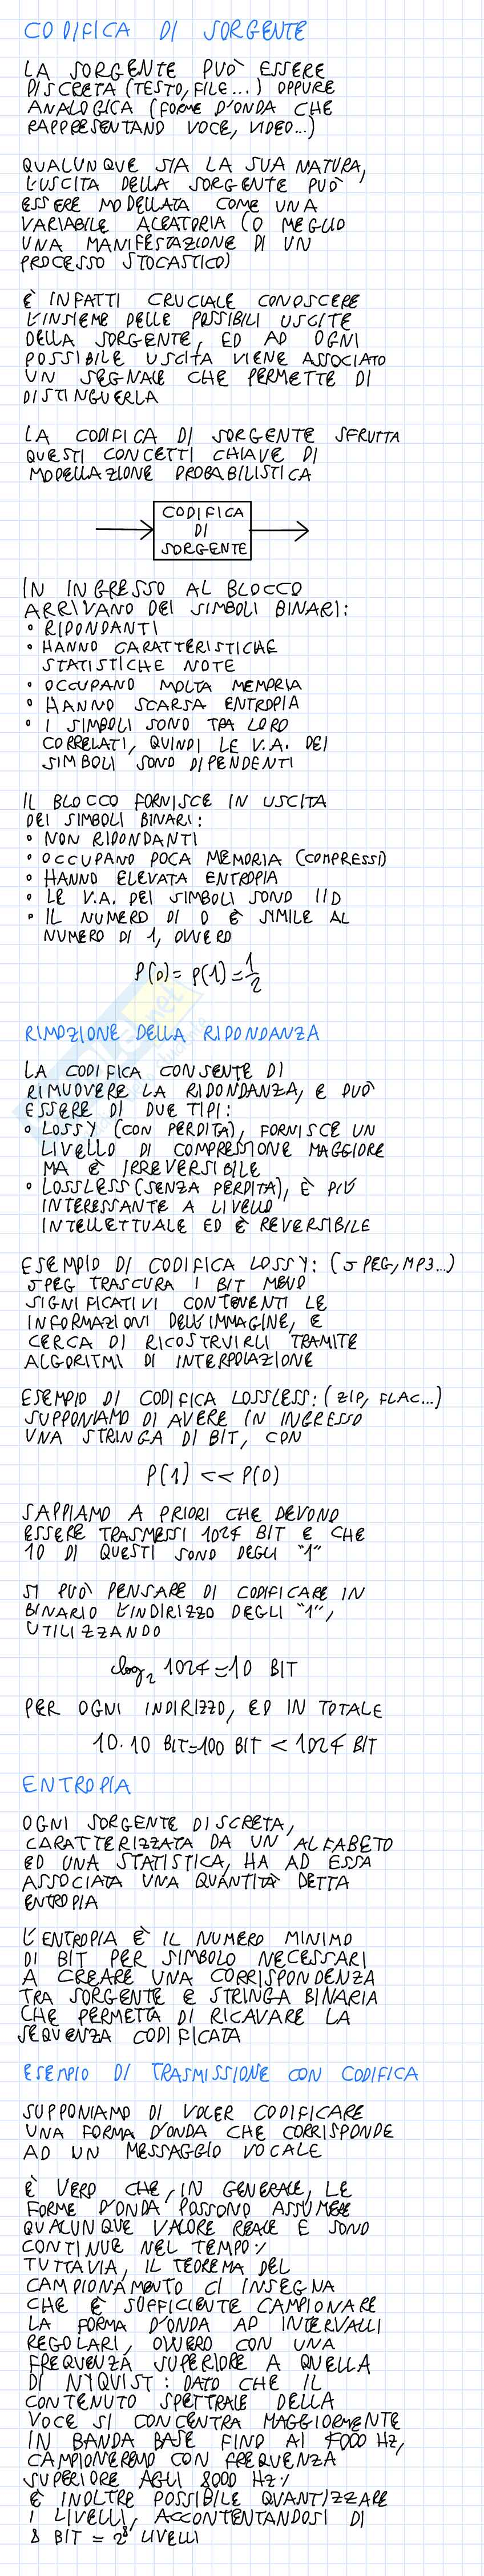 CODIFICA DI SORGENTE
LA SORGENTE PUÒ ESSERE
DISCRETA (TESTO, FILE...) OPPURE
ANALOGICA (FORME D'ONDA CHE
RAPPRESENTANO VOCE, VIDEO...)
QUALUNQUE SIA LA SUA NATURA,
L'USCITA DELLA SORGENTE PUÒ
ESSERE MODELLATA COME UNA
VARIABILE ALEATORIA (O MEGLIO
UNA MANIFESTAZIONE DI UN
PROCESSO STOCASTICO)
È INFATTI CRUCIALE CONOSCERE
L'INSIEME DELLE POSSIBILI USCITE
DELLA SORGENTE, ED AD OGNI
POSSIBILE USCITA VIENE ASSOCIATO
UN SEGNALE CHE PERMETTE DI
DISTINGUERLA
LA CODIFICA DI SORGENTE SFRUTTA
QUESTI CONCETTI CHIAVE DI
MODELLAZIONE PROBABILISTICA
CODIFICA
DI
SORGENTE
IN INGRESSO AL BLOCCO
ARRIVANO DEI SIMBOLI BINARI:
• RIDONDANTI
• HANNO CARATTERISTICHE
STATISTICHE NOTE
• OCCUPANO MOLTA MEMORIA
• HANNO SCARSA ENTROPIA
• I SIMBOLI SONO TRA LORO
CORRELATI, QUINDI LE V.A. DEI
SIMBOLI SONO DIPENDENTI
IL BLOCCO FORNISCE IN USCITA
DEI SIMBOLI BINARI:
• NON RIDONDANTI
• OCCUPANO POCA MEMORIA (COMPRESSI)
• HANNO ELEVATA ENTROPIA
• LE V.A. DEI SIMBOLI SONO IID
• IL NUMERO DI 0 È SIMILE AL
NUMERO DI 1, OVVERO
P(0) = P(1) = 1/2
RIMOZIONE DELLA RIDONDANZA
LA CODIFICA CONSENTE DI
RIMUOVERE LA RIDONDANZA, E PUÒ
ESSERE DI DUE TIPI:
• LOSSY (CON PERDITA), FORNISCE UN
LIVELLO DI COMPRESSIONE MAGGIORE
MA È IRREVERSIBILE
• LOSSLESS (SENZA PERDITA), È PIÙ
INTERESSANTE A LIVELLO
INTELLETTUALE ED È REVERSIBILE
ESEMPIO DI CODIFICA LOSSY: (JPEG, MP3...)
JPEG TRASCURA I BIT MENO
SIGNIFICATIVI CONTENENTI LE
INFORMAZIONI DELL'IMMAGINE, E
CERCA DI RICOSTRUIRLI TRAMITE
ALGORITMI DI INTERPOLAZIONE
ESEMPIO DI CODIFICA LOSSLESS: (ZIP, FLAC...)
SUPPONIAMO DI AVERE IN INGRESSO
UNA STRINGA DI BIT, CON
P(1) << P(0)
SAPPIAMO A PRIORI CHE DEVONO
ESSERE TRASMESSI 1024 BIT E CHE
10 DI QUESTI SONO DEGLI "1"
SI PUÒ PENSARE DI CODIFICARE IN
BINARIO L'INDIRIZZO DEGLI "1",
UTILIZZANDO
log₂ 1024 = 10 BIT
PER OGNI INDIRIZZO, ED IN TOTALE
10 · 10 BIT = 100 BIT < 1024 BIT
ENTROPIA
OGNI SORGENTE DISCRETA,
CARATTERIZZATA DA UN ALFABETO
ED UNA STATISTICA, HA AD ESSA
ASSOCIATA UNA QUANTITÀ DETTA
ENTROPIA
L'ENTROPIA È IL NUMERO MINIMO
DI BIT PER SIMBOLO NECESSARI
A CREARE UNA CORRISPONDENZA
TRA SORGENTE E STRINGA BINARIA
CHE PERMETTA DI RICAVARE LA
SEQUENZA CODIFICATA
ESEMPIO DI TRASMISSIONE CON CODIFICA
SUPPONIAMO DI VOLER CODIFICARE
UNA FORMA D'ONDA CHE CORRISPONDE
AD UN MESSAGGIO VOCALE
È VERO CHE, IN GENERALE, LE
FORME D'ONDA POSSONO ASSUMERE
QUALUNQUE VALORE REALE E SONO
CONTINUE NEL TEMPO;
TUTTAVIA, IL TEOREMA DEL
CAMPIONAMENTO CI INSEGNA
CHE È SUFFICIENTE CAMPIONARE
LA FORMA D'ONDA AD INTERVALLI
REGOLARI, OVVERO CON UNA
FREQUENZA SUPERIORE A QUELLA
DI NYQUIST: DATO CHE IL
CONTENUTO SPETTRALE DELLA
VOCE SI CONCENTRA MAGGIORMENTE
IN BANDA BASE FINO AI 4000 HZ,
CAMPIONEREMO CON FREQUENZA
SUPERIORE AGLI 8000 HZ;
È INOLTRE POSSIBILE QUANTIZZARE
I LIVELLI, ACCONTENTANDOSI DI
8 BIT = 2⁸ LIVELLI